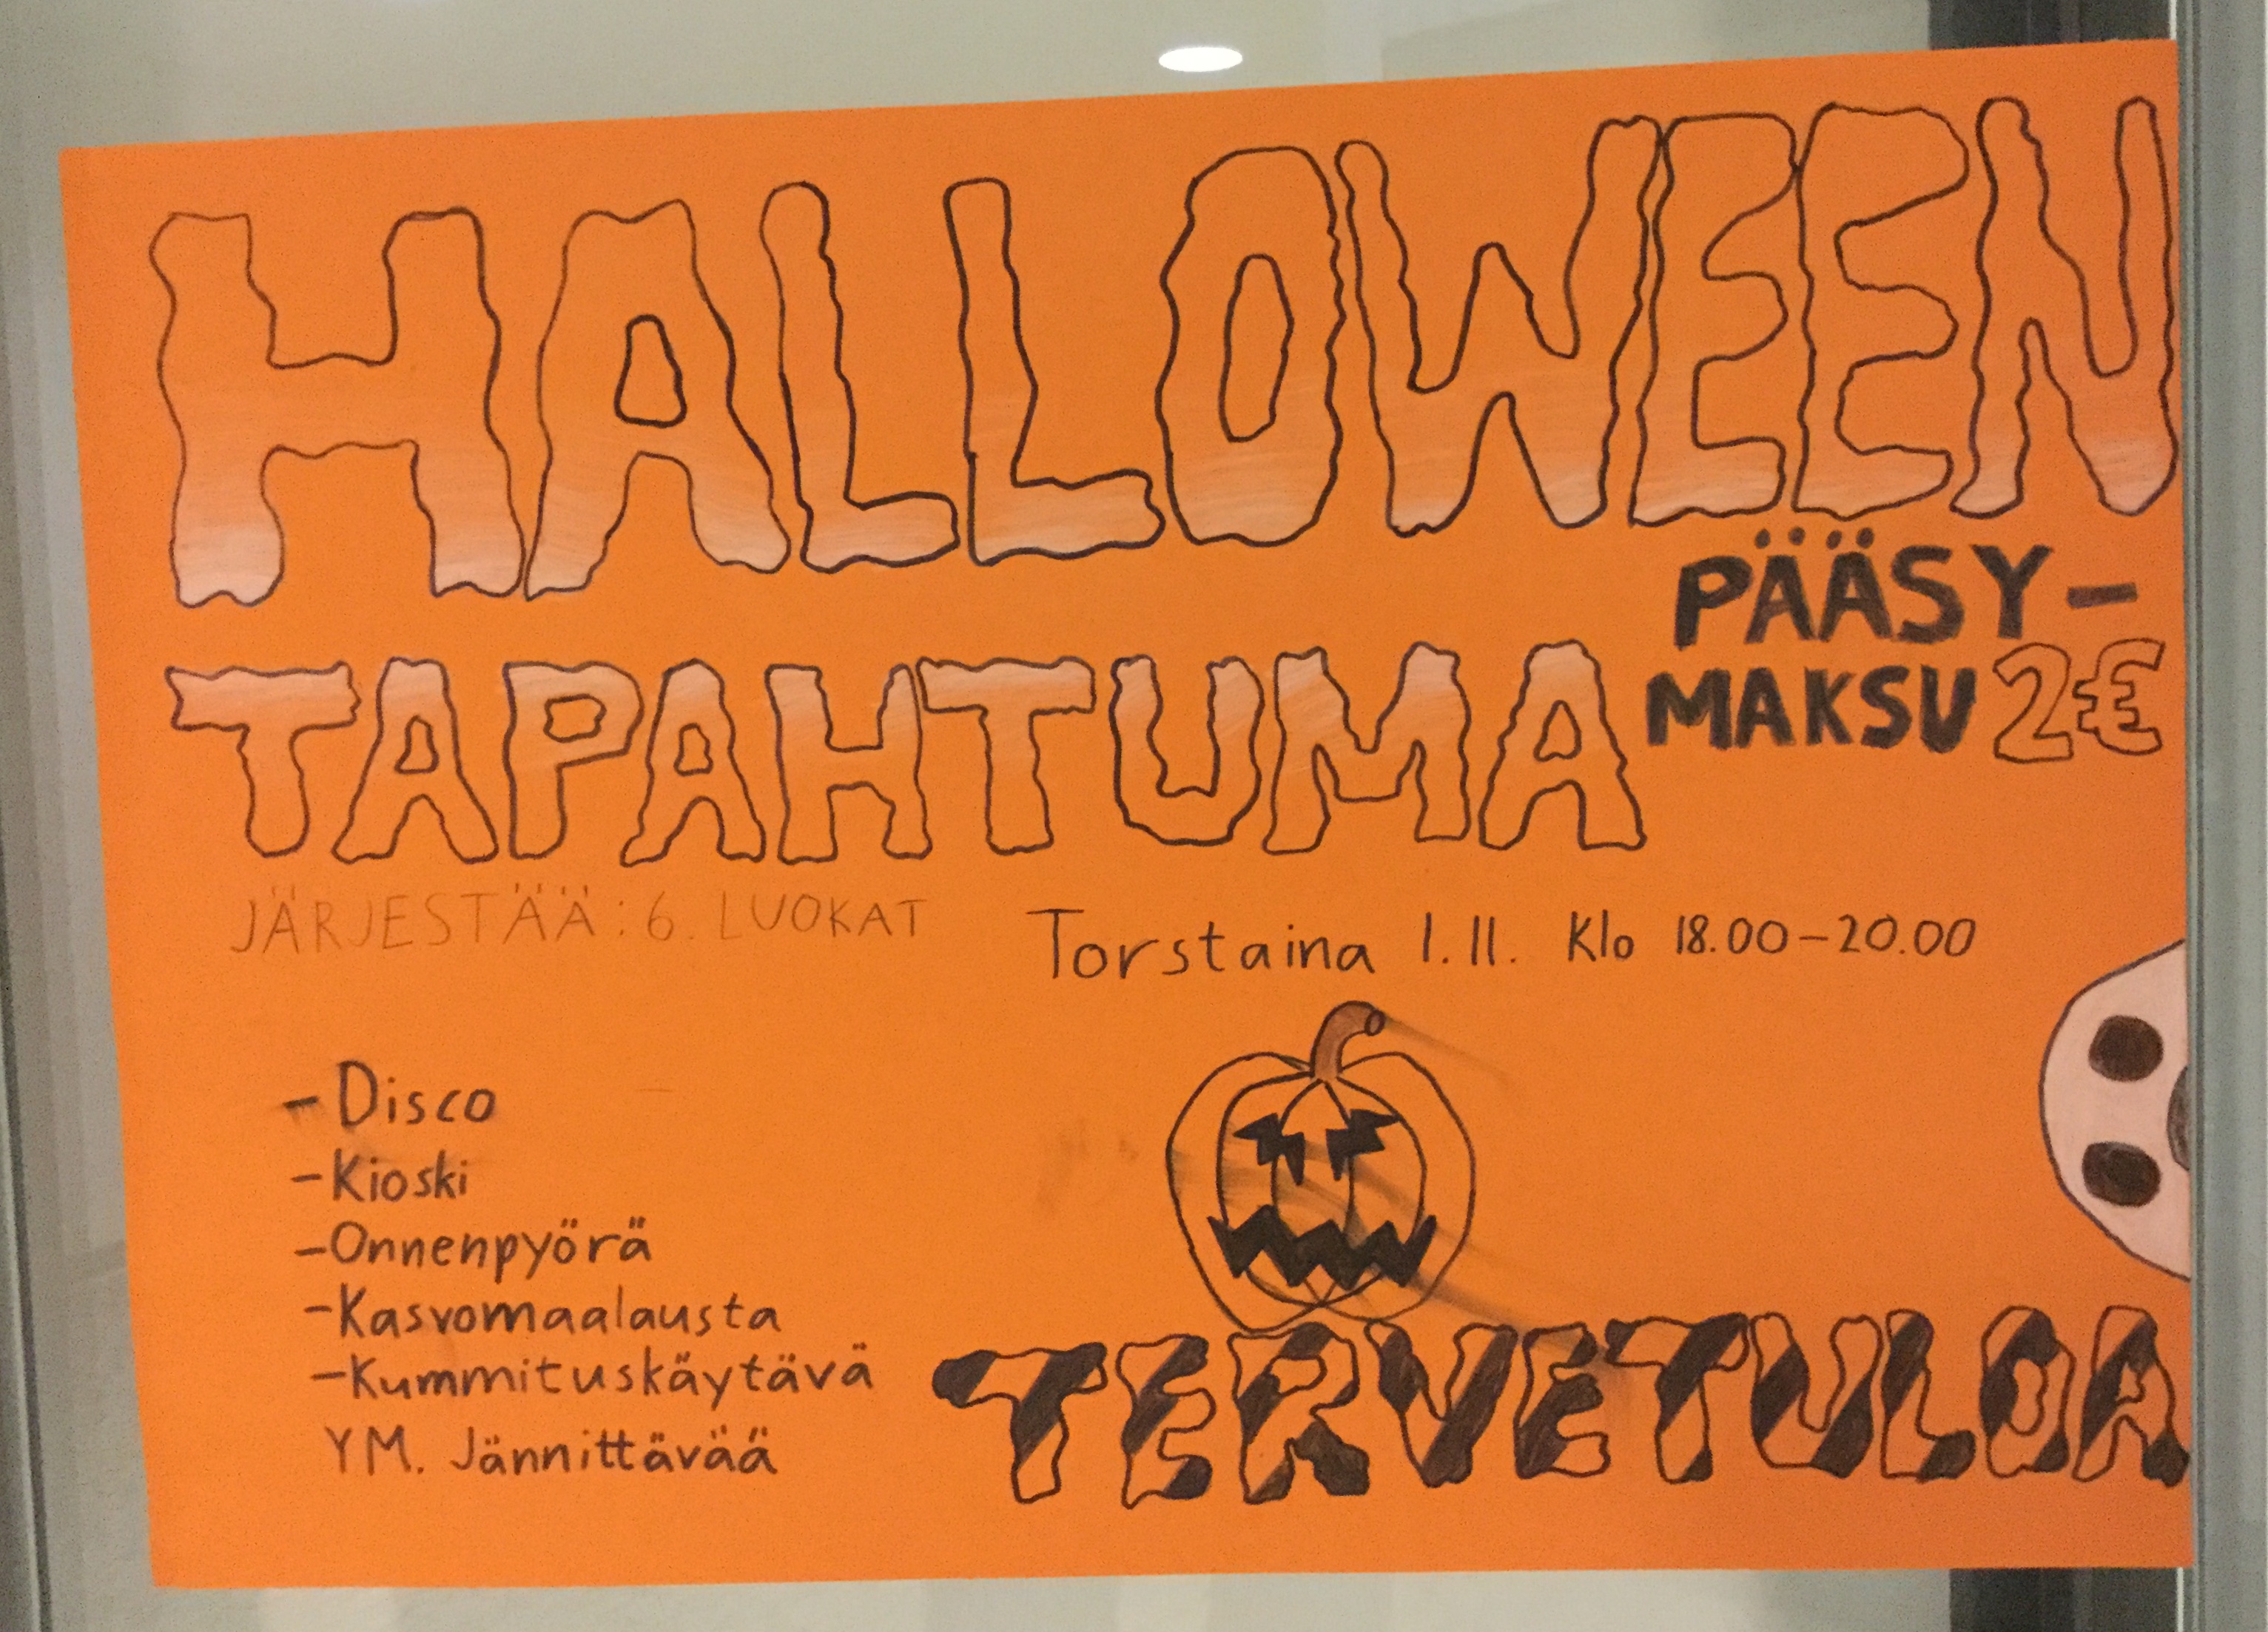 HALLOWEEN
TAPAHTUMA
PÄÄSY-
MAKSU 2€
JÄRJESTÄÄ: 6. LUOKAT
Torstaina 1.11. Klo 18.00-20.00
- Disco
- Kioski
- Onnenpyörä
- Kasvomaalausta
- Kummituskäytävä
YM. Jännittävää
TERVETULOA